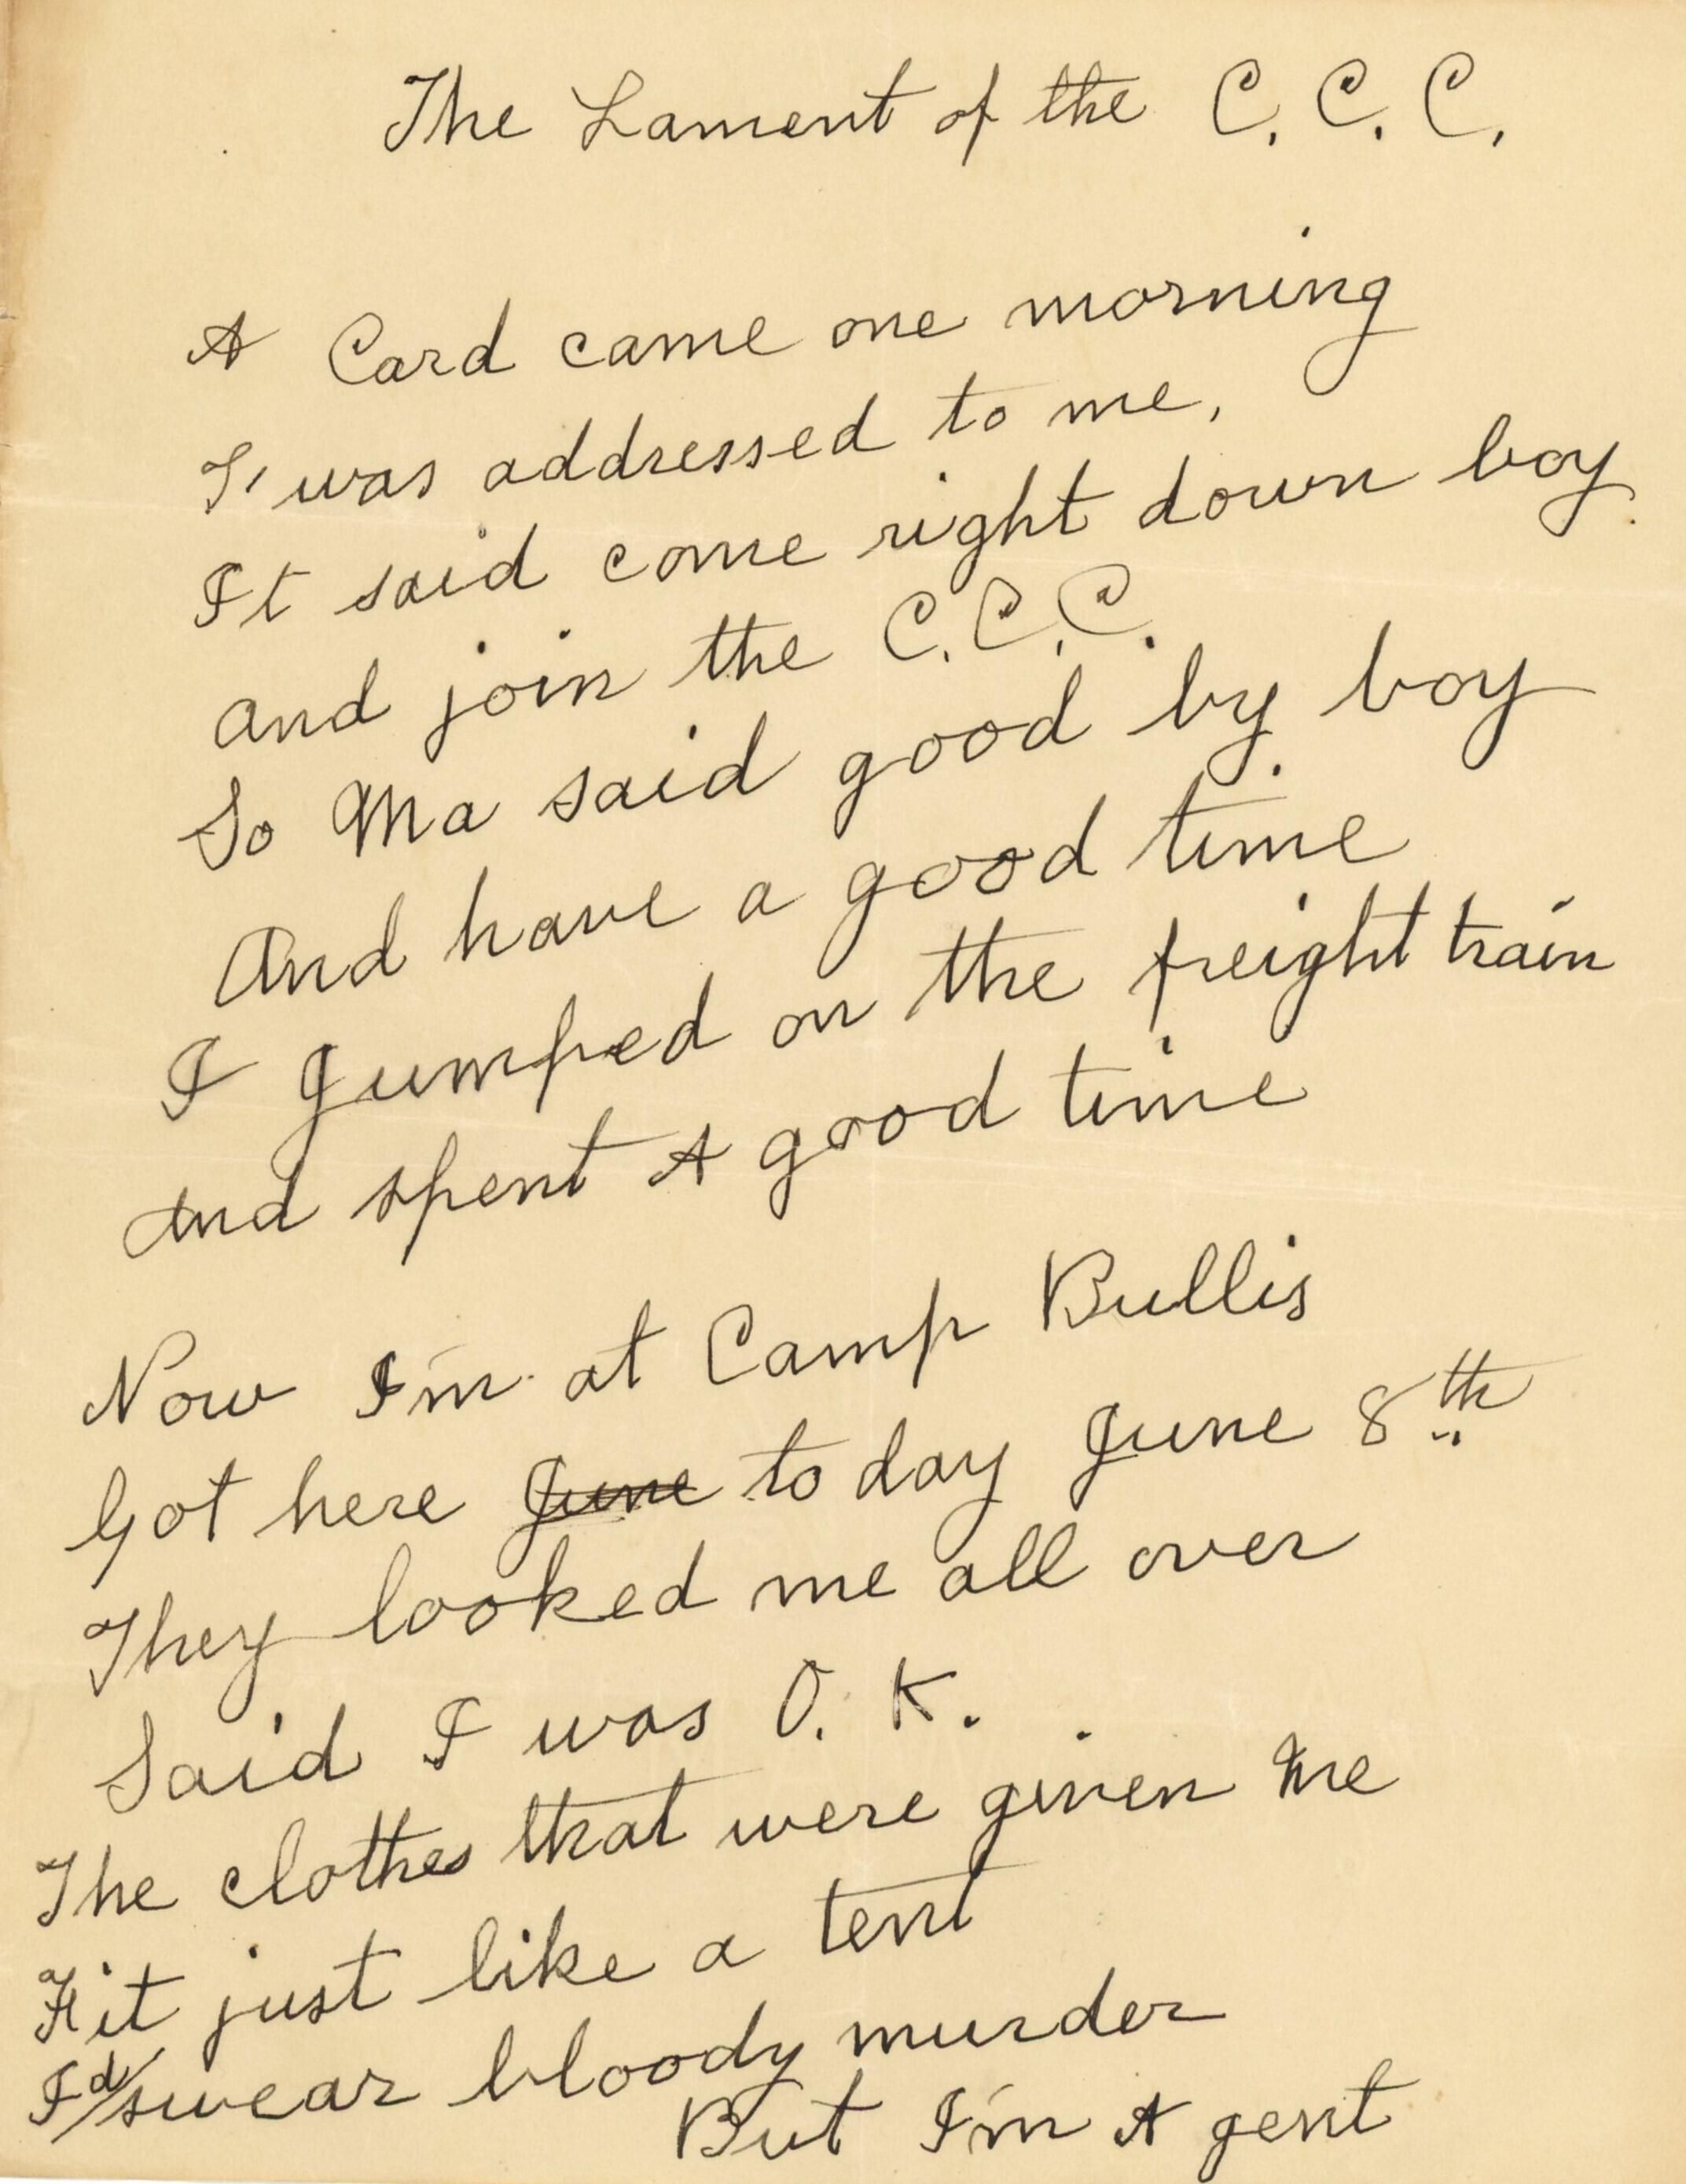 The Lament of the C. C. C.
A Card came one morning
T'was addressed to me,
It said come right down boy.
and join the C.C.C.
So Ma said good by boy
And have a good time
I Jumped on the freight train
And spent A good time
Now I'm at Camp Bullis
Got here ~~June~~ to day June 8th
They looked me all over
Said I was O. K.
The clothes that were given me
Fit just like a tent
I'd swear bloody murder
But I'm A gent